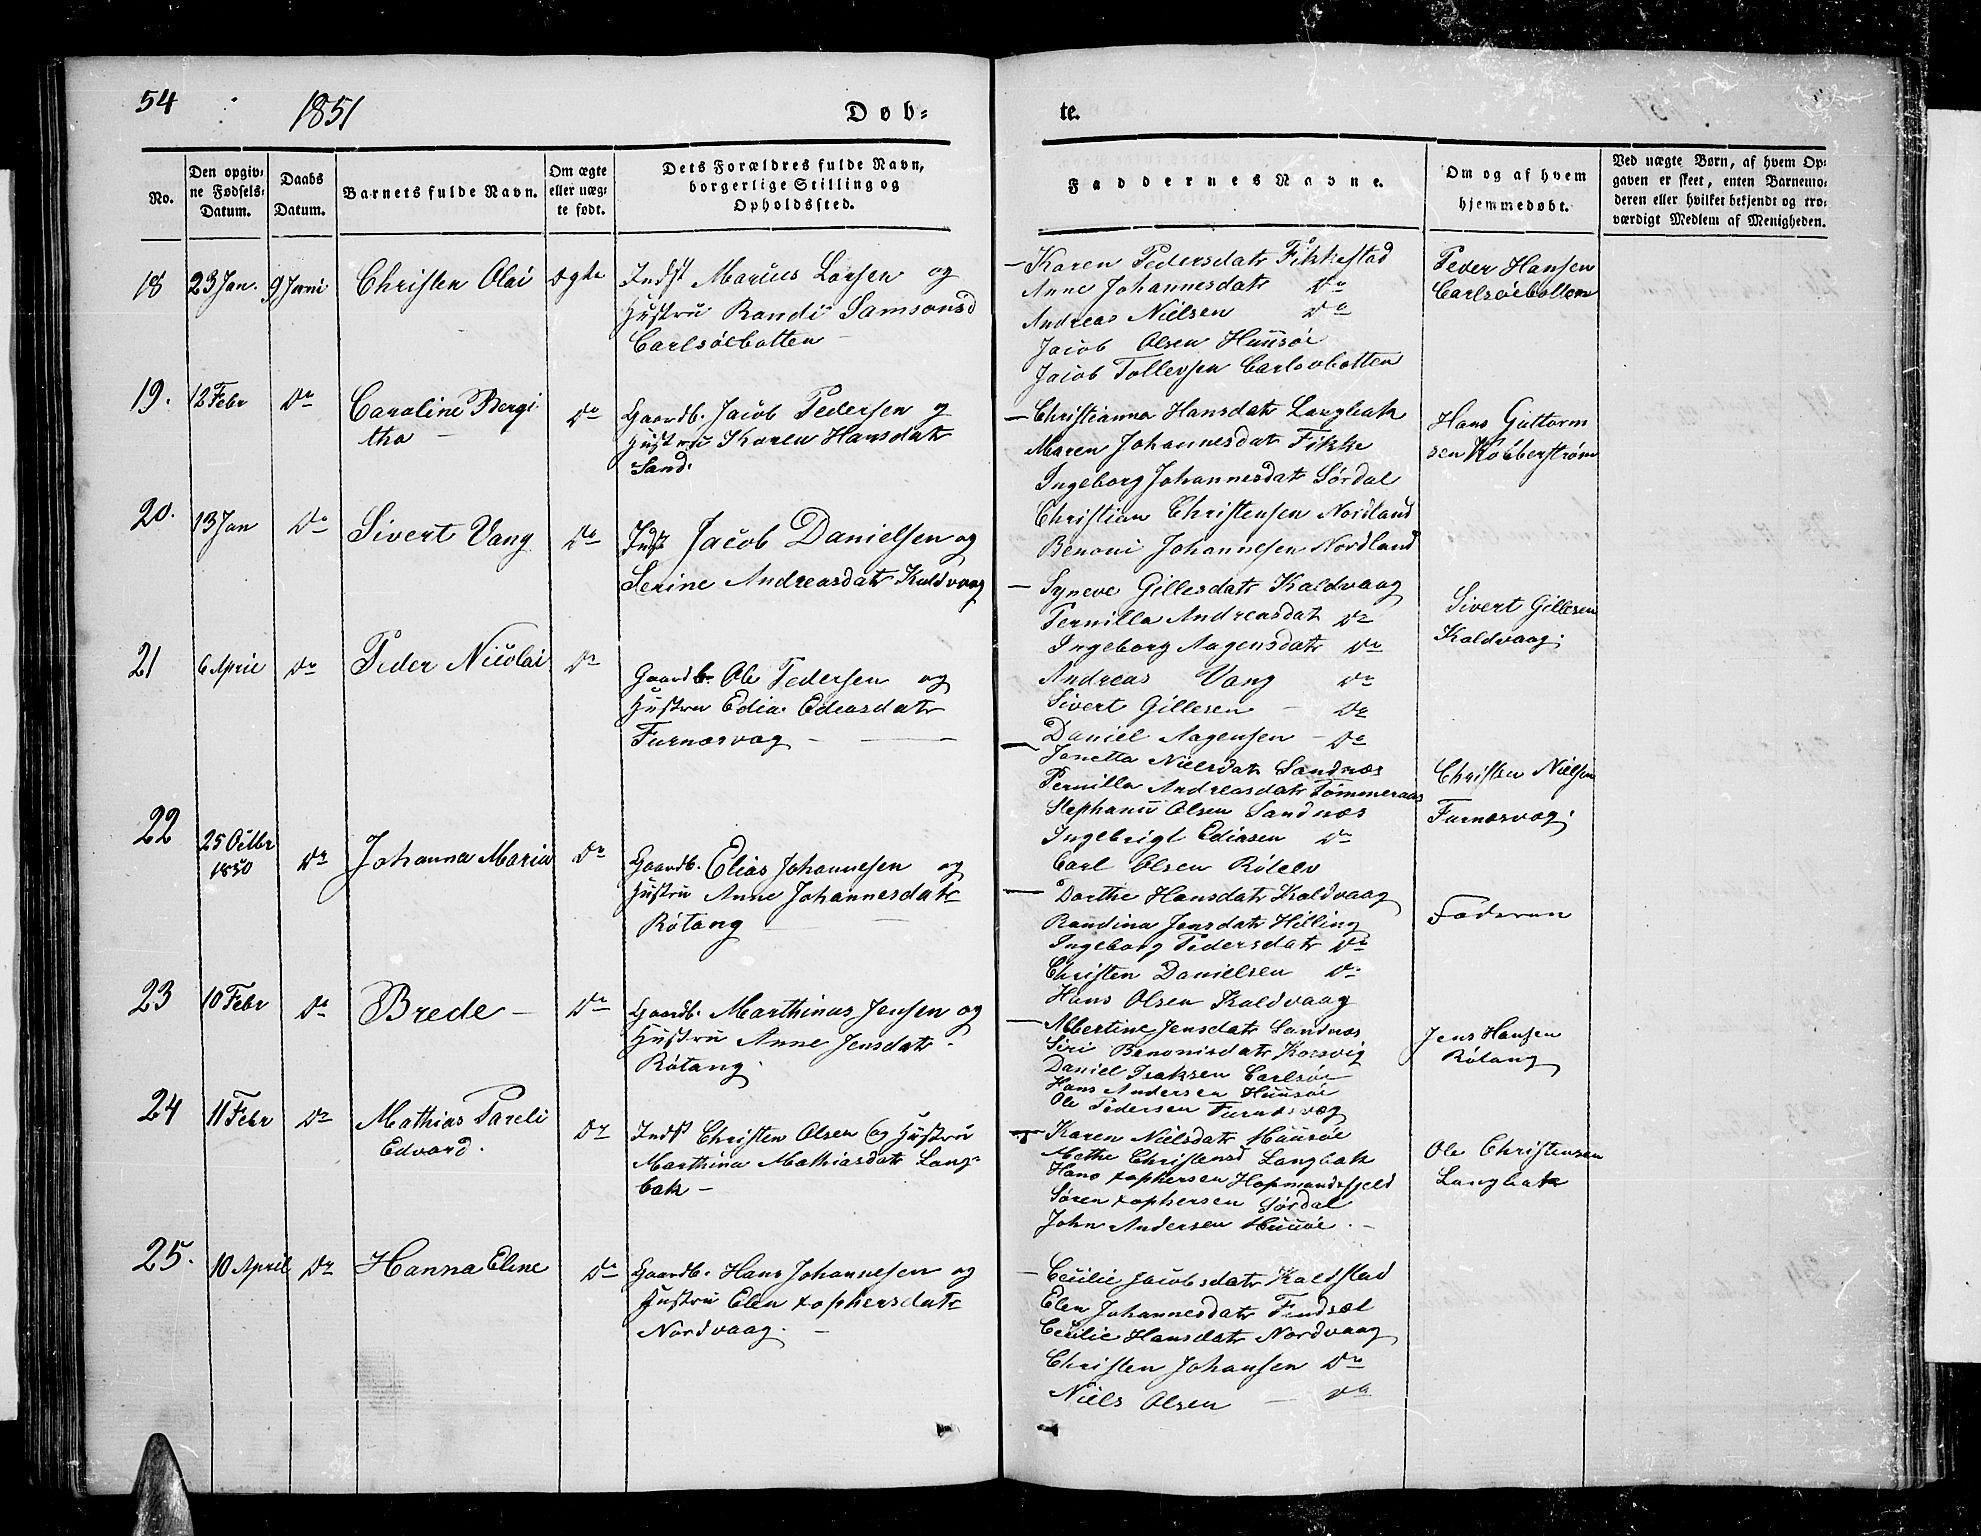 54
1851
Døb-
te.
No.
Den opgiv-
ne Fødsels-
Datum.
Daabs
Datum.
Barnets fulde Navn.
Om ægte
eller uæg-
te født.
Dets Forældres fulde Navn,
borgerlige Stilling og
Opholdssted.
Faddernes Navne.
Om og af hvem
hjemmedøbt.
Ved uægte Børn, af hvem Op-
gaven er skeet, enten Barnemo-
deren eller hvilket bekjendt og tro-
værdigt Medlem af Menigheden.
18 23 Jan. 9 Juni Christen Olai ægte
Indst Marius Larsen og
Hustru Randi Samsonsd
Carlsöebotten –
– Karen Pedersdatr Fikkestad
Anne Johannesdatr Do
Andreas Nielsen Do
Jacob Olsen Huusöe
Jacob Tollevsen Carlsøbotten
Peder Hansen
Carlsöebotten
19. 12 Febr Do Caroline Bergi
tha – Do
Gaardb. Jacob Pedersen og
Hustru Karen Hansdatr
Sand.
– Christianna Hansdatr Langbak
Maren Johannesdatr Fikke
Ingeborg Johannesdatr Sördal
Christian Christensen Nordland
Benoni Johannesen Nordland
Hans Guttorm
sen Kobberström
20. 13 Jan Do Sivert Vang Do
Indst Jacob Danielsen og
Serine Andreasdatr Kaldvaag
– Syneve Gillesdatr Kaldvaag
Pernilla Andreasdat Do
Ingeborg Aagensdatr Do
Andreas Vang Do
Sivert Gillesen – Do
Daniel Aagensen – Do
Sivert Gillesen
Kaldvaag.
21 6 April Do Peder Nicolai Do
Gaardb. Ole Pedersen og
Hustru Edia Ediasdatr
Furnæsvag –
– Janetta Nielsdatr Sandnæs
Pernilla Andreasdatr Tømmeraas
Stephanu Olsen Sandnæs
Ingebrigt Ediasen Do
Carl Olsen Rötelv
Christen Nielsen
Furnæsvag.
22 25 Octbr
1850 Do Johanna Maria Do
Gaardb. Elias Johannesen og
Hustru Anne Johannesdatr
Røtang –
– Dorthe Hansdatr Kaldvaag
Randina Jensdatr Hilling
Ingeborg Pedersdatr Do
Christen Danielsen Do
Hans Olsen Kaldvaag
Faderen
23 10 Febr Do Brede – Do
Gaardb. Marthinus Jensen og
Hustru Anne Jensdatr
Røtang.
– Albertine Jensdatr Sandnæs
Siri Benonisdatr Korsvig
Daniel Isaksen Carlsöe
Hans Andersen Huusöe
Ole Pedersen Furnæsvag
Jens Hansen
Røtang
24 11 Febr Do Mathias Pareli
Edvard. Do
Indst Christen Olsen og Hustru
Marthina Mathiasdatr Lang-
bak –
– Karen Nielsdatr Huusöe
Methe Christensd Langbak
Hans xophersen Hopmandsfjeld
Sören xophersen Sördal
John Andersen Huusöe. –
Ole Christensen
Langbak
25. 10 April Do Hanna Eline Do
Gaardb. Hans Johannesen og
Hustru Elen xophersdatr
Nordvaag. –
– Cecilie Jacobsdatr Kaldstad
Elen Johannesdatr Findsæt
Cecilie Hansdatr Nordvaag
Christen Johansen Do
Niels Olsen – Do